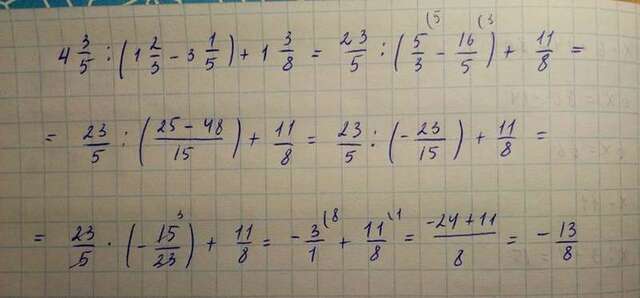 4 3/5 : (1 2/3 - 3 1/5) + 1 3/8 = 23/5 : (5/3 (5 - 16/5 (3) + 11/8 =
= 23/5 : ((25 - 48)/15) + 11/8 = 23/5 : (- 23/15) + 11/8 =
= 23/5 · (- 15/23 3) + 11/8 = - 3/1 (8 + 11/8 \1 = (-24 + 11)/8 = - 13/8